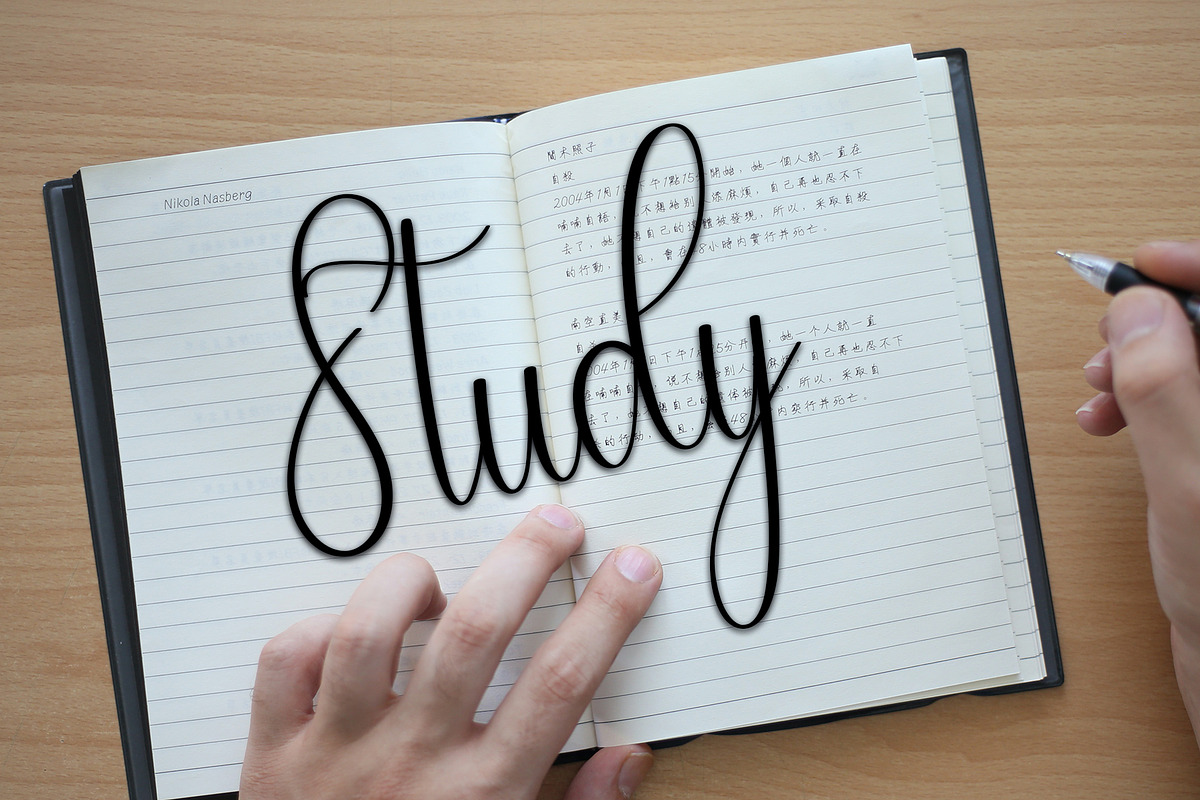 Nikola Nasberg
間木照子
自殺
2004年1月1 下午1點15 開始，她一個人就一直在
喃喃自語， 不想給別 添麻煩，自己再也忍不下
去了，她不想自己的遺體被發現，所以，采取自殺
的行動， 且，會在 8小時內實行并死亡。
南空直美
自
004年1 日下午1 25分开 ，她一个人就一直
在喃喃自 ，说不想给别人 麻烦，自己再也忍不下
去了，她 想自己的 体被 ，所以，采取自
的行动， 且， 48 内实行并死亡。
Study